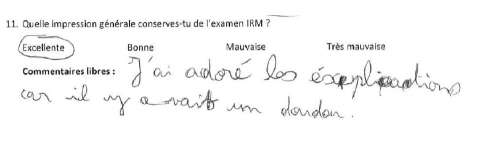 11. Quelle impression générale conserves-tu de l'examen IRM ?
Excellente Bonne Mauvaise Très mauvaise
Commentaires libres : J'ai adoré les éxplications
car il n'y a vait un doudou.